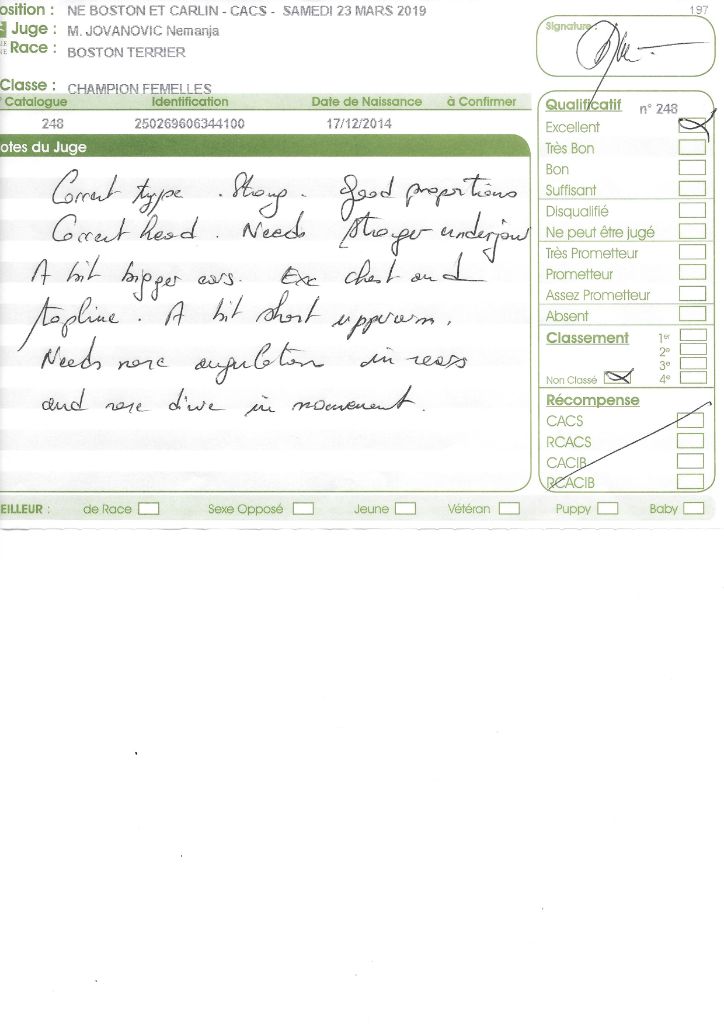 osition : NE BOSTON ET CARLIN - CACS - SAMEDI 23 MARS 2019
197
Juge : M. JOVANOVIC Nemanja
Race : BOSTON TERRIER
Classe : CHAMPION FEMELLES
Signature :
Catalogue Identification Date de Naissance à Confirmer
248 250269606344100 17/12/2014
otes du Juge
Correct type . Strong . Good proportions
Correct head . Needs stronger underjaw
A bit bigger ears. Exc chest and
topline . A bit short upperarm .
Needs more angulation in rears
and more drive in movement .
Qualificatif n° 248
Excellent
Très Bon
Bon
Suffisant
Disqualifié
Ne peut être jugé
Très Prometteur
Prometteur
Assez Prometteur
Absent
Classement 1er
2e
3e
Non Classé 4e
Récompense
CACS
RCACS
CACIB
RCACIB
EILLEUR : de Race Sexe Opposé Jeune Vétéran Puppy Baby